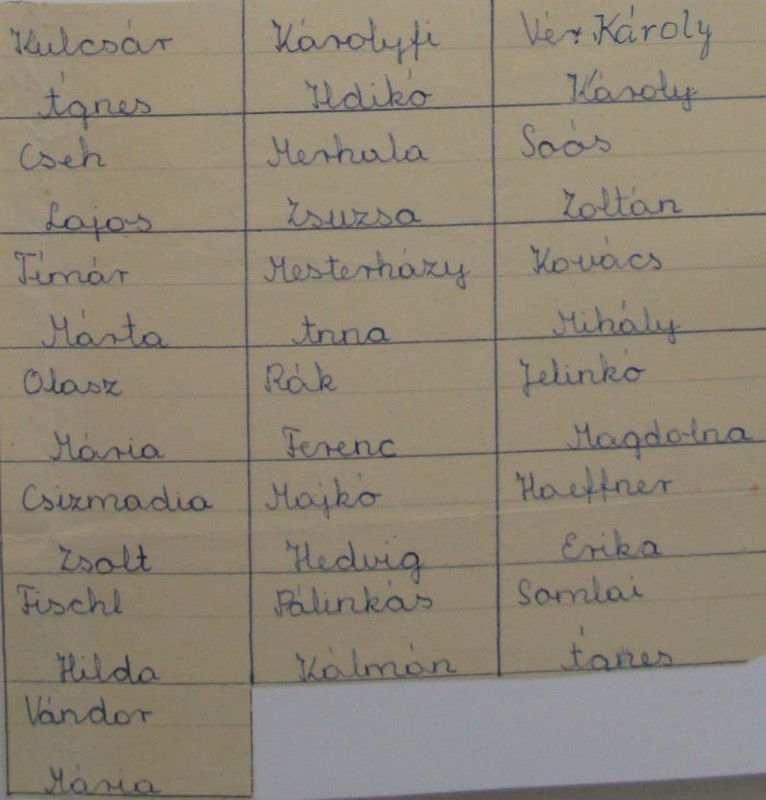 Kulcsár
Ágnes
Cseh
Lajos
Tímár
Márta
Olasz
Mária
Csizmadia
Zsolt
Fischl
Hilda
Vándor
Mária
Károlyfi
Ildikó
Merhala
Zsuzsa
Mesterházy
Anna
Rák
Ferenc
Majkó
Hedvig
Pálinkás
Kálmán
Károly
Károly
Soós
Zoltán
Kovács
Mihály
Jelinkó
Magdolna
Haeffner
Erika
Somlai
Ágnes